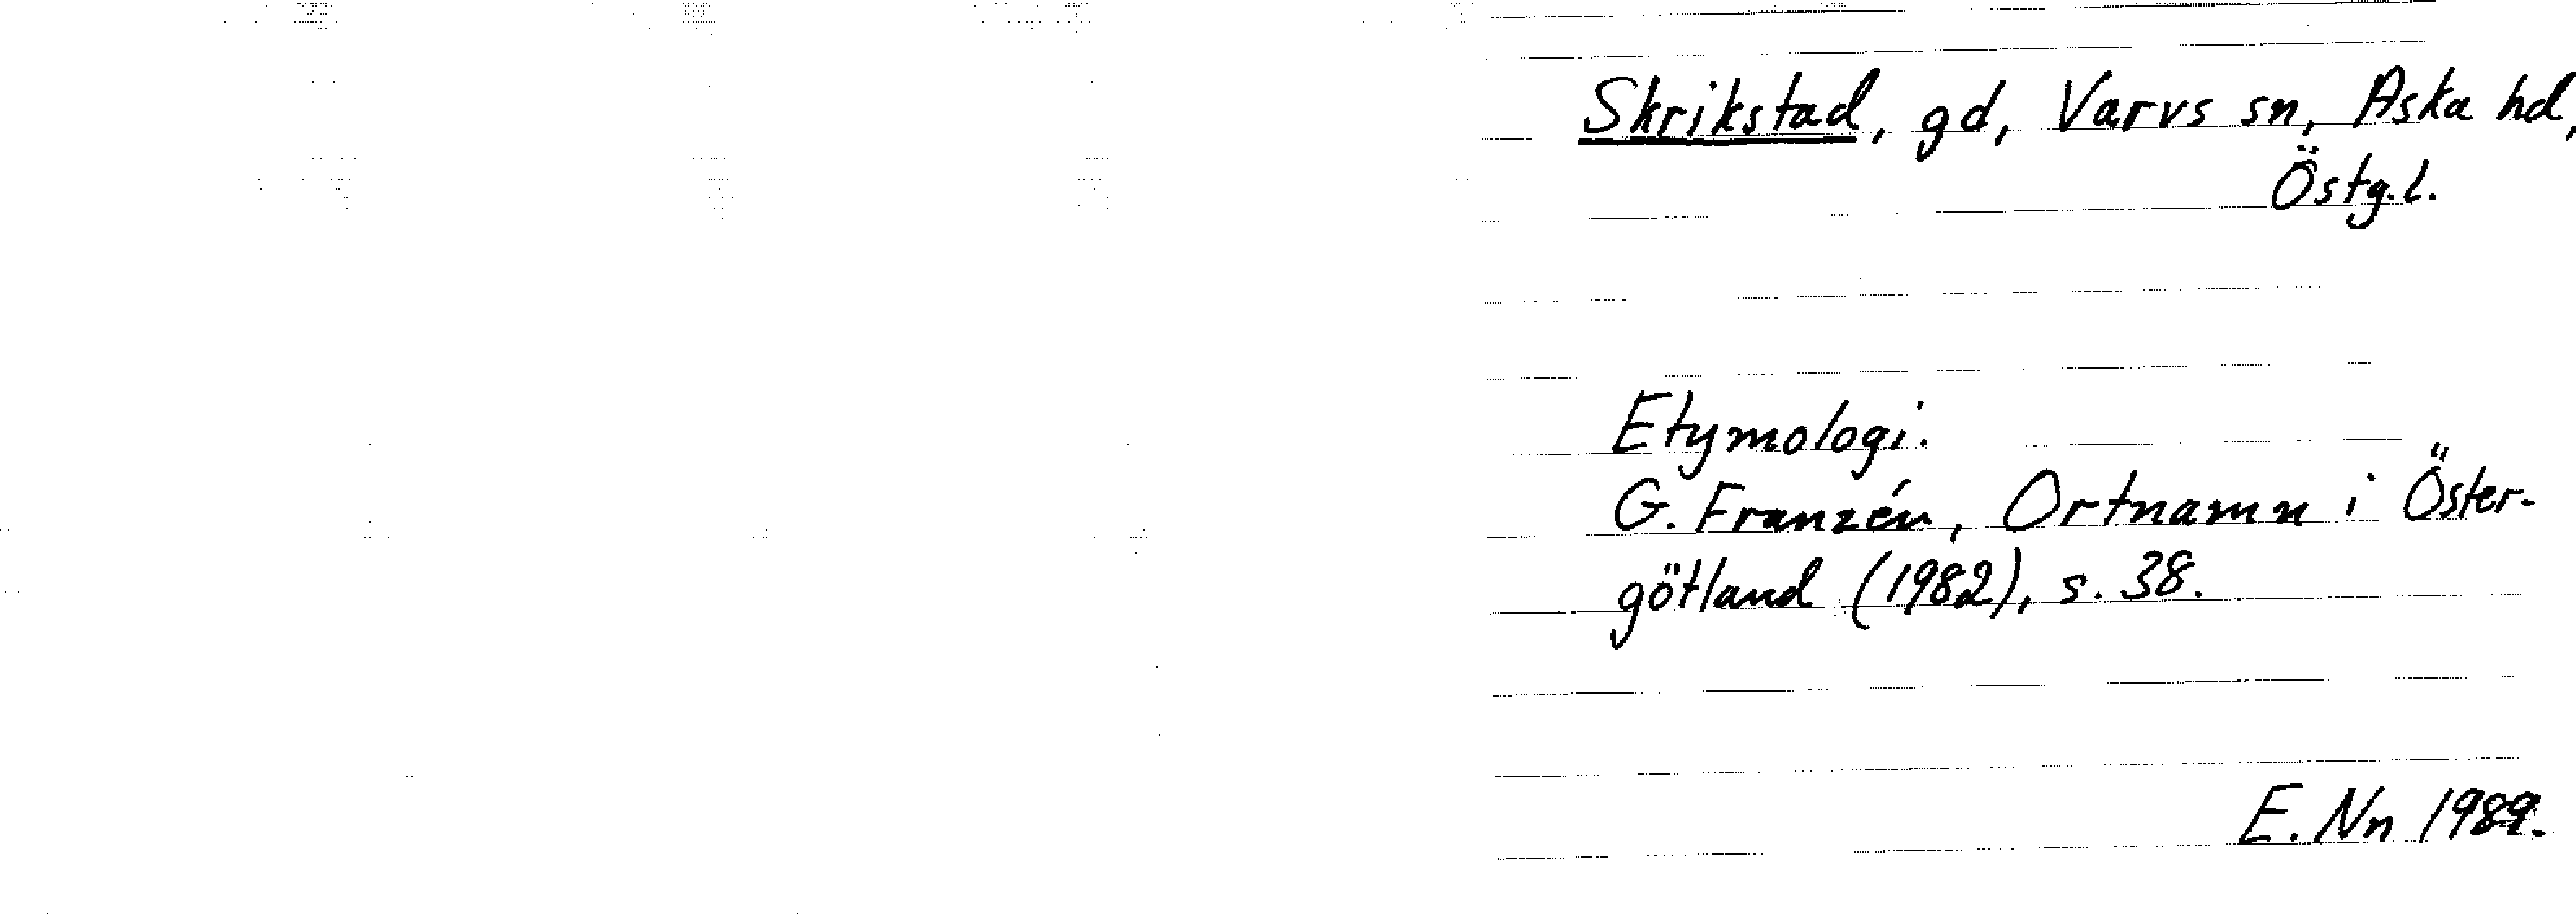 Skrikstad, gd, Varvs sn, Aska hd,
Östg.l.
Etymologi.
G. Franzén, Ortnamn i Öster-
götland (1982), s. 38.
E. Nn 1989.